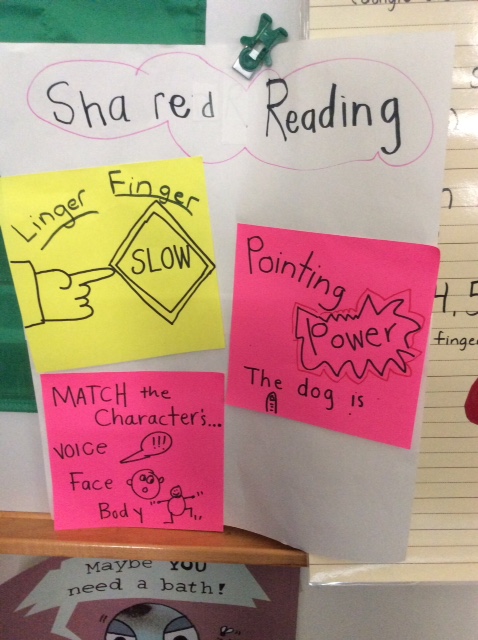 Shared Reading
Linger Finger
SLOW
Pointing
Power
The dog is
MATCH the
Character's...
VOICE
!!!
Face
Body
Maybe YOU
need a bath!
4, 5
finger